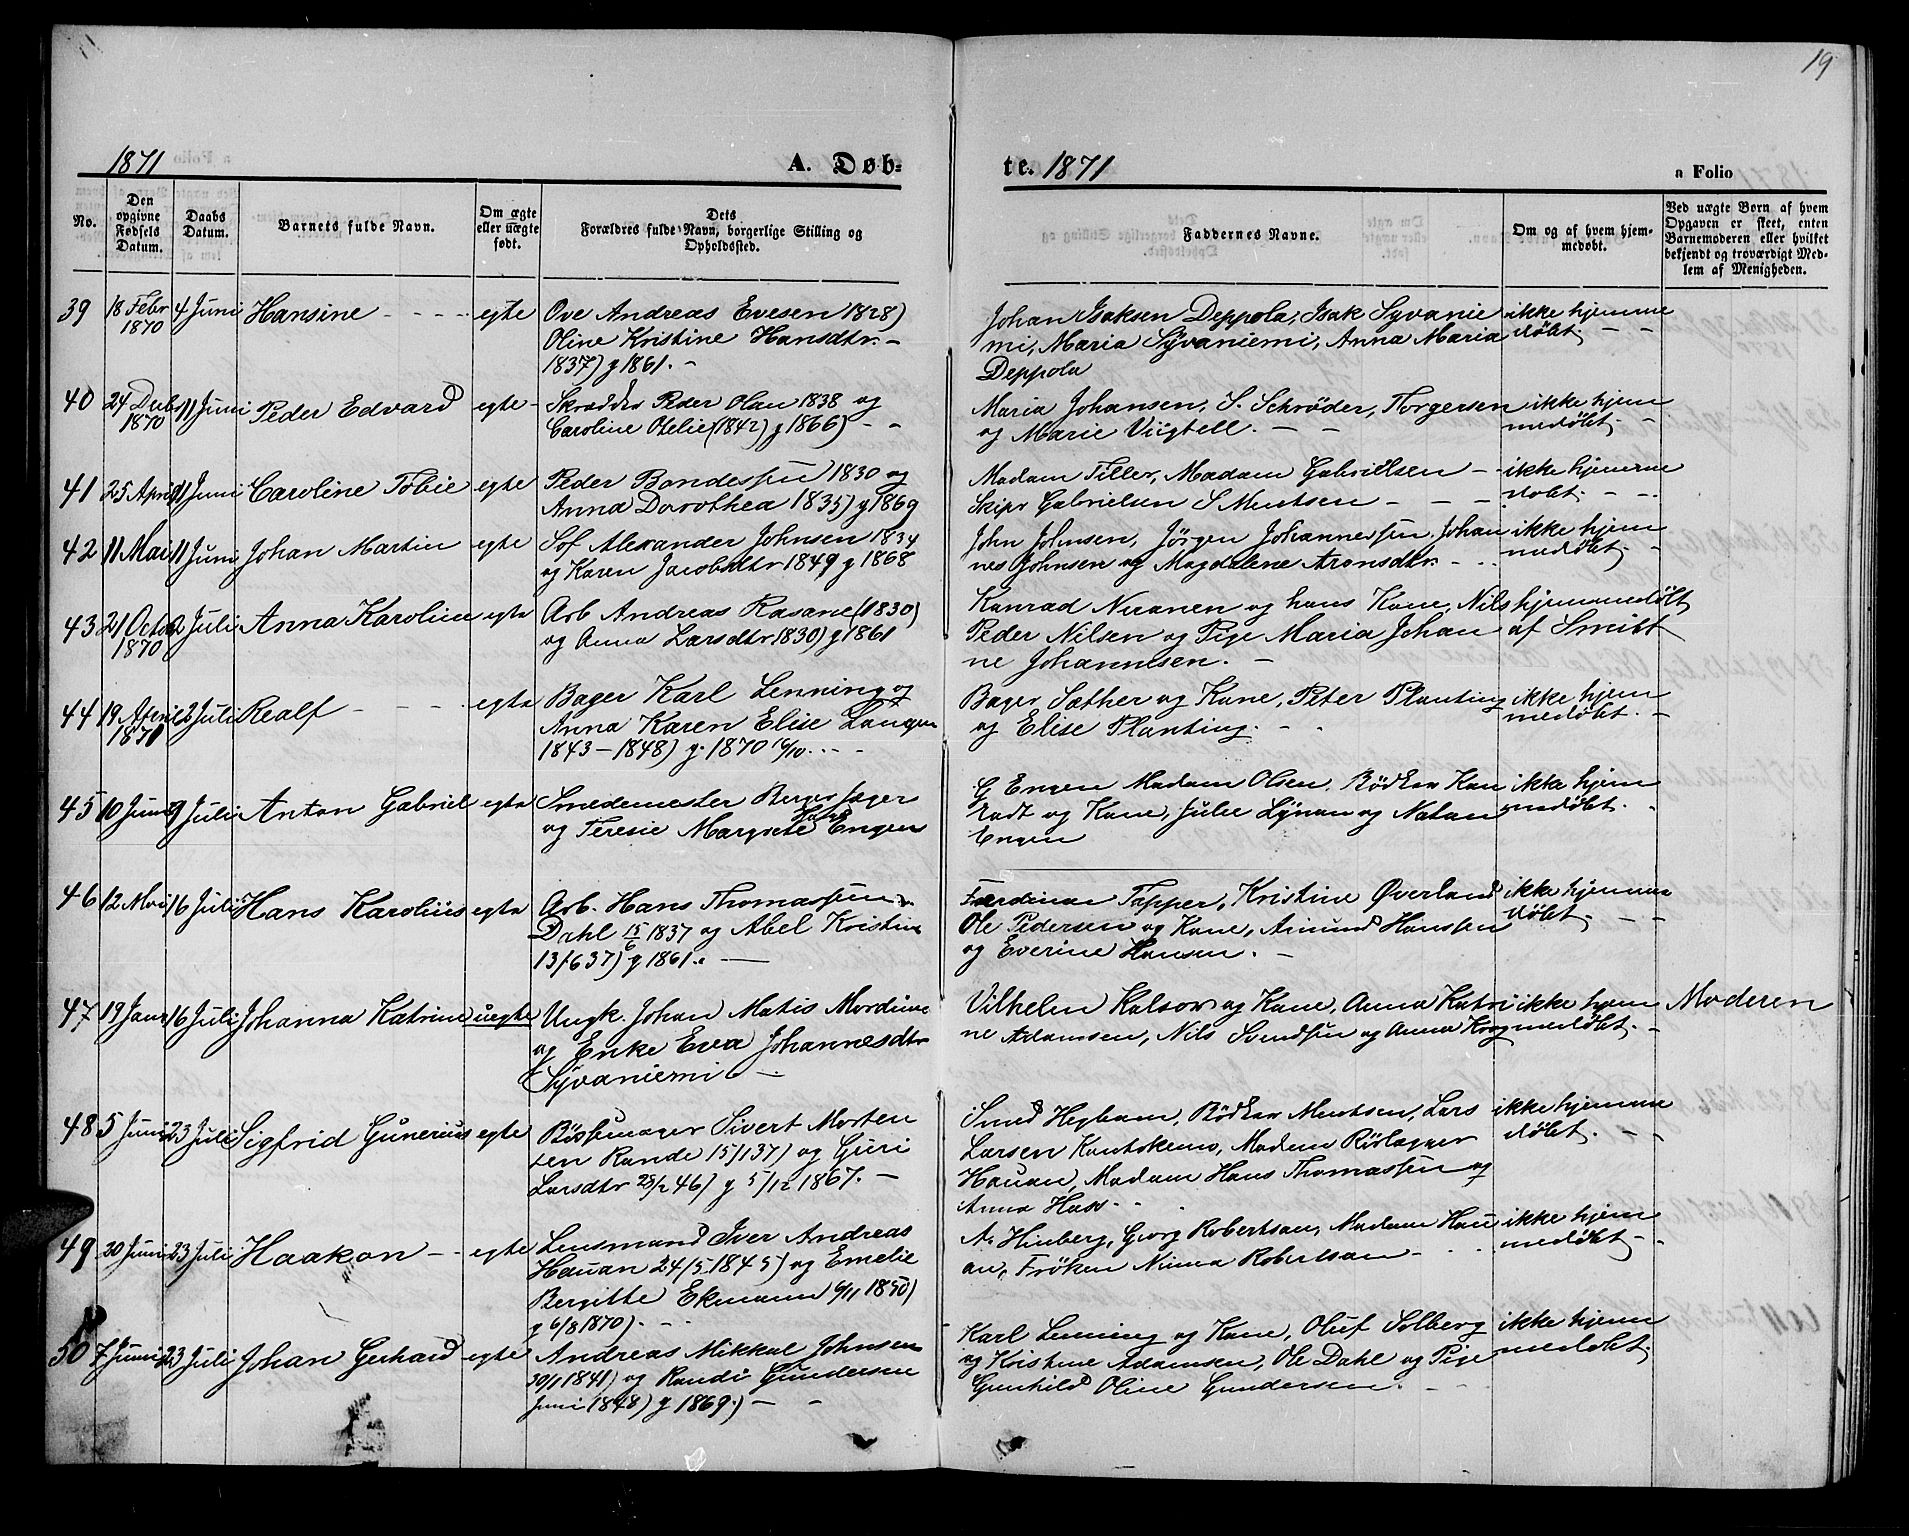 19
1871
A. Døb-
te. 1871
a Folio
No.
Den opgivne Fødsels Datum.
Daabs Datum.
Barnets fulde Navn.
Om ægte eller uægte født.
Dets Forældres fulde Navn, borgerlige Stilling og Opholdssted.
Faddernes Navne.
Om og af hvem hjemmedøbt.
Ved uægte Børn af hvem Opgaven er skeet, enten Barnemoderen eller hvilket bekjendt og troværdigt Medlem af Menigheden.
39 18 Febr 1870 4 Juni Hansine egte
Ove Andreas Evesen 1828)
Oline Kristine Hansdtr
1837) g 1861.
Johan Isaksen Deppola, Isak Syvanie
mi, Maria Syvaniemi, Anna Maria
Deppola
ikke hjemme
døbt
40 24 1870 11 Juni Peder Edvard egte
Skrædder Peder Olau 1838 og
Caroline Ofelie (1842) g 1866)
Maria Johansen, S. Schrøder, Torgersen
og Marie
ikke hjem
medøbt
41 25 April 11 Juni Caroline Tobie egte
Peder Bondesen 1830 og
Anna Dorothea 1835) g 1869
Madam Tiller, Madam Gabrielsen
Skipr Gabrielsen S
ikke hjemme
døbt
42 11 Mai 11 Juni Johan Martin egte
Sof Alexander Johnsen 1834
og Karen Jacobsdtr 1849 g 1868
John Johnsen, Jørgen Johannessen, Johan
nes Johnsen og Magdalene Aronsdtr
ikke hjem
medøbt
43 21 Octo 1870 2 Juli Anna Karoline egte
Arb Andreas Rasane (1830)
og Anna Larsdtr 1830) g 1861
Konrad og hans Kone, Nils
Peder Nilsen og Pige Maria Johan
ne Johannesen.
hjemmedøbt
af Smitt
44 19 April 1871 2 Juli Realf egte
Bager Karl Lenning og
Anna Karen Elise Langen
1843 - 1848) g. 1870 16/10
Bager Sæther og Kone, Peter Planting
og Elise Planting.
ikke hjem
medøbt
45 10 Juni 9 Juli Anton Gabriel egte
Smedemester Berger
og Teresie Margrete Engen
G Engen Madam Olsen, Bødker Kon
radt og Kone, Julie og Natan
Engen
ikke hjem
medøbt
46 12 Mai 16 Juli Hans Karoliüs egte
Arb. Hans Thomassen
Dahl 15/6 1837 og Abel Kristine
13/6 37) g 1861.
Ferdinan Tapper, Kristine Øverland
Ole Pedersen og Kone, Amund Hanssen
og Everine Hansen.
ikke hjemme
døbt
47 19 Janr 16 Juli Johanna Katrine uegte
Ungk. Johan Matis
og Enke Eva Johannesdtr
Syvaniemi
Vilhelm og Kone, Anna Katri
ne Adamsen, Nils Svendsen og Anna Krog
ikke hjem
medøbt
Moderen
48 5 Juni 23 Juli Sigfrid Gunerius egte
Bøssemager Sivert Morten
sen Rande 15/1 37) og Guri
Larsdtr 28/2 46) g 5/12 1867.
Smed Bødker Lars
Larsen Madam
Hauan, Madam Hans Thomassen og
Anna
ikke hjemme
døbt
49 20 Juni 23 Juli Haakon egte
Lensmand Iver Andreas
Hauan 24/5 1845) og Emelie
Bergitte Ekmann 6/11 1850)
g 6/8 1870)
A. Georg Robertson, Madam Hau
an, Frøken Ninna Robertson
ikke hjem
medøbt
50 7 Juni 23 Juli Johan Gerhard egte
Andreas Mikkal Johnsen
1841) og Randi Gundersen
Juni 1848) g 1869)
Karl Lenning og Kone, Oluf Solberg
og Kristine Adamsen, Ole Dahl og Pige
Gunhild Oline Gundersen.
ikke hjem
medøbt